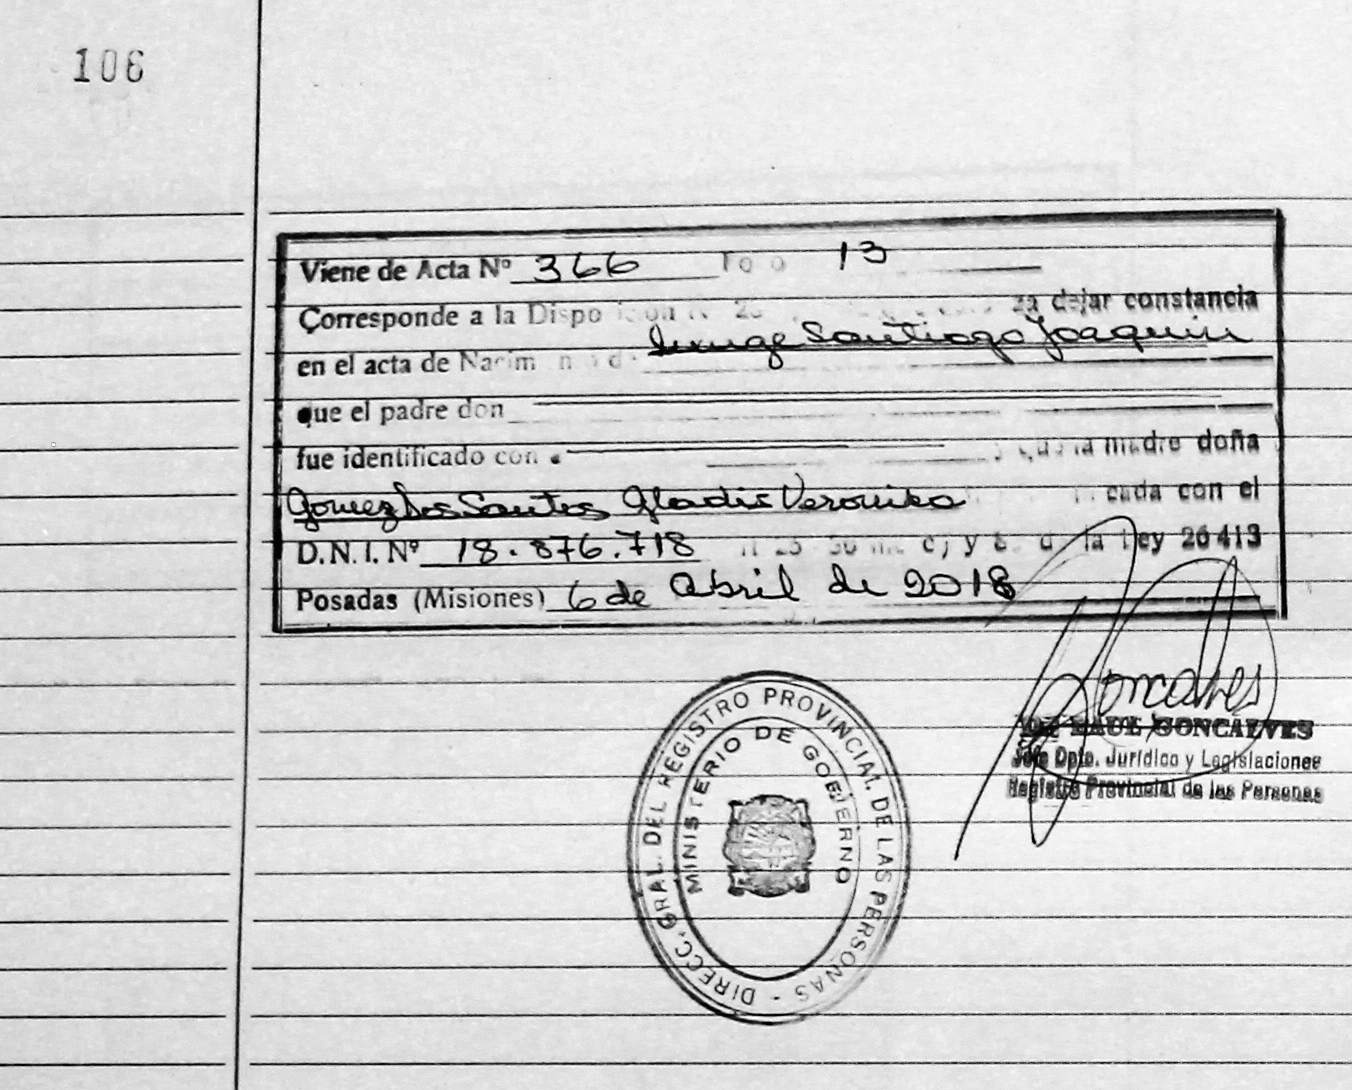 106
Viene de Acta Nº 366 13
Corresponde a la dejar constancia
en el acta de Santiago Joaquin
que el padre don
fue identificado con madre doña
Gomez Dos Santos Gladis Veronika con el
D.N.I. Nº 18.876.718 y la Ley 26413
Posadas (Misiones) 6 de abril de 2018
Goncalves
RAUL GONCALVES
Jefe Dpto. Jurídico y Legislaciones
Registro Provincial de las Personas
DIRECC. GRAL. DEL REGISTRO PROVINCIAL DE LAS PERSONAS -
MINISTERIO DE GOBIERNO